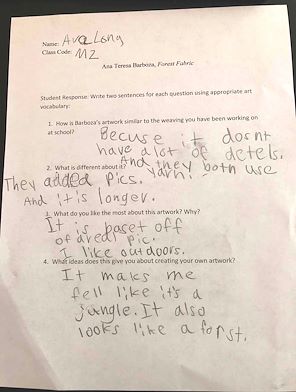 Name: Ava Long
Class Code: M2
Ana Teresa Barboza, Forest Fabric
Student Response: Write two sentences for each question using appropriate art
vocabulary:
1. How is Barboza's artwork similar to the weaving you have been working on
at school?
Becuse it dosnt
have a lot of detels.
And they both use
yarn.
2. What is different about it?
They added pics.
And it is longer.
3. What do you like the most about this artwork? Why?
It is baset off
of a real pic.
I like outdoors.
4. What ideas does this give you about creating your own artwork?
It maks me
fell like it's a
jungle. It also
looks like a forst.